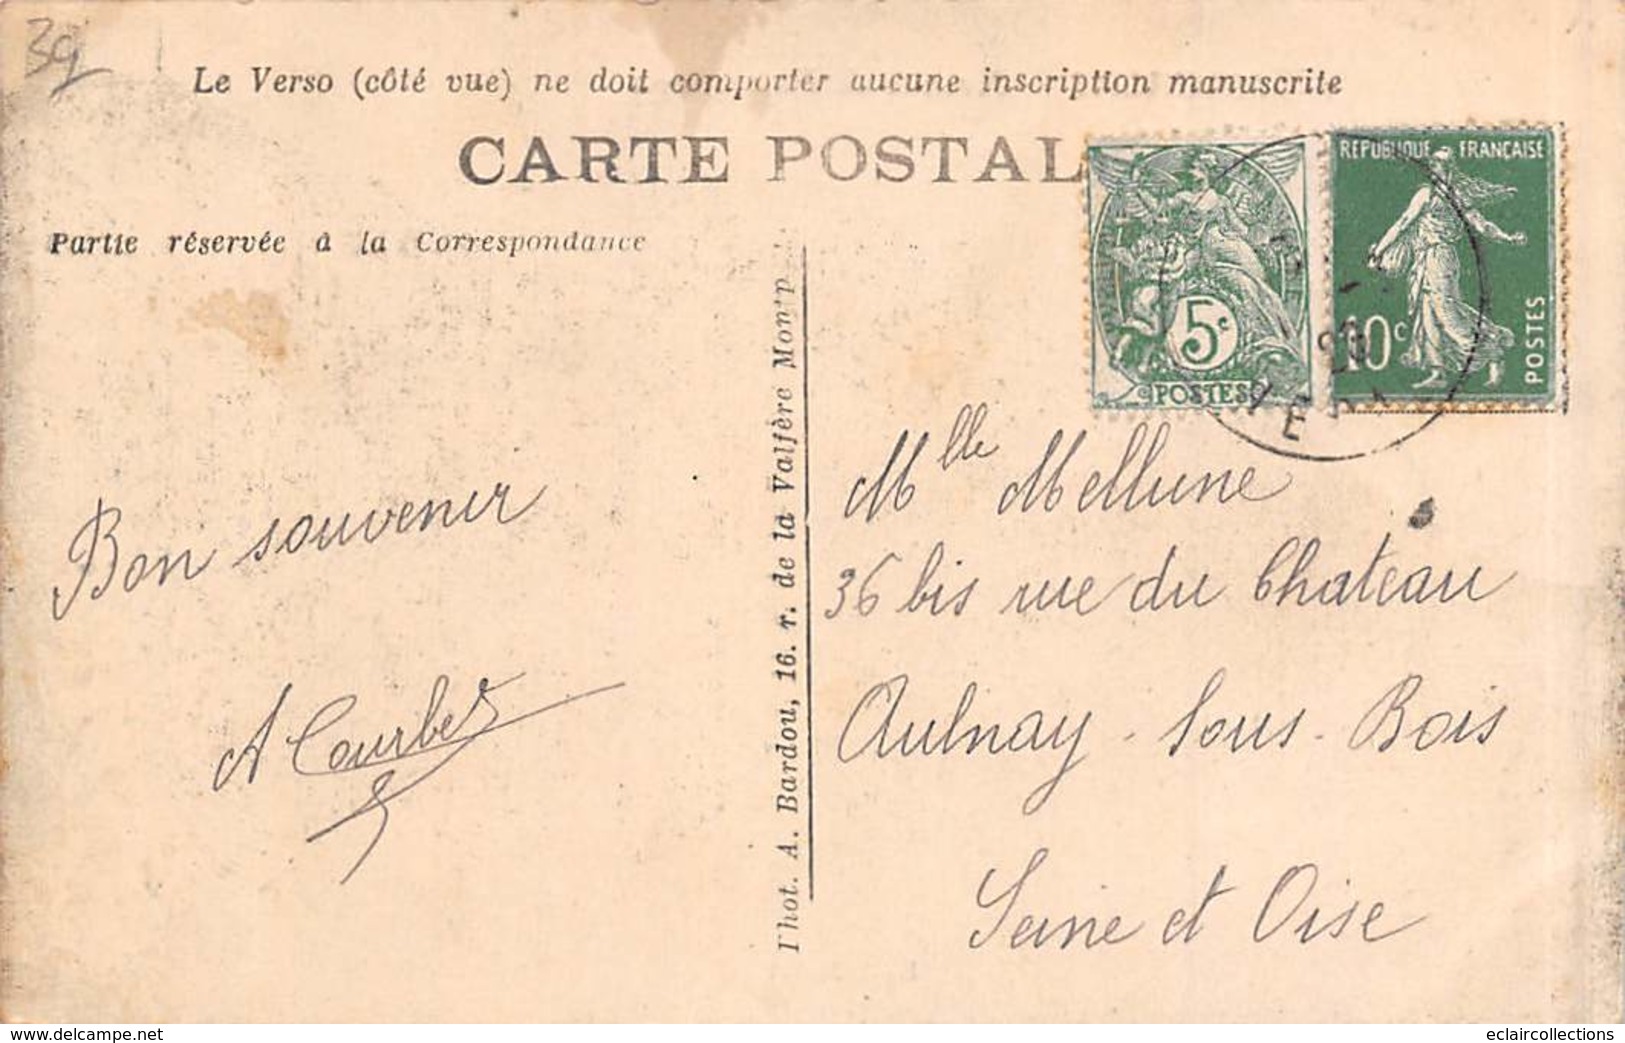 39
Le Verso (côté vue) ne doit comporter aucune inscription manuscrite
CARTE POSTAL
RÉPUBLIQUE FRANÇAISE
5c
POSTES
10c
POSTES
Partie réservée à la Correspondance
Bon souvenir
A Courbet
Phot. A. Bardou, 16. r. de la Valfère Montp
Mlle Mellune
36 bis rue du Chateau
Aulnay-Sous-Bois
Seine et Oise
www.delcampe.net
eclaircollections